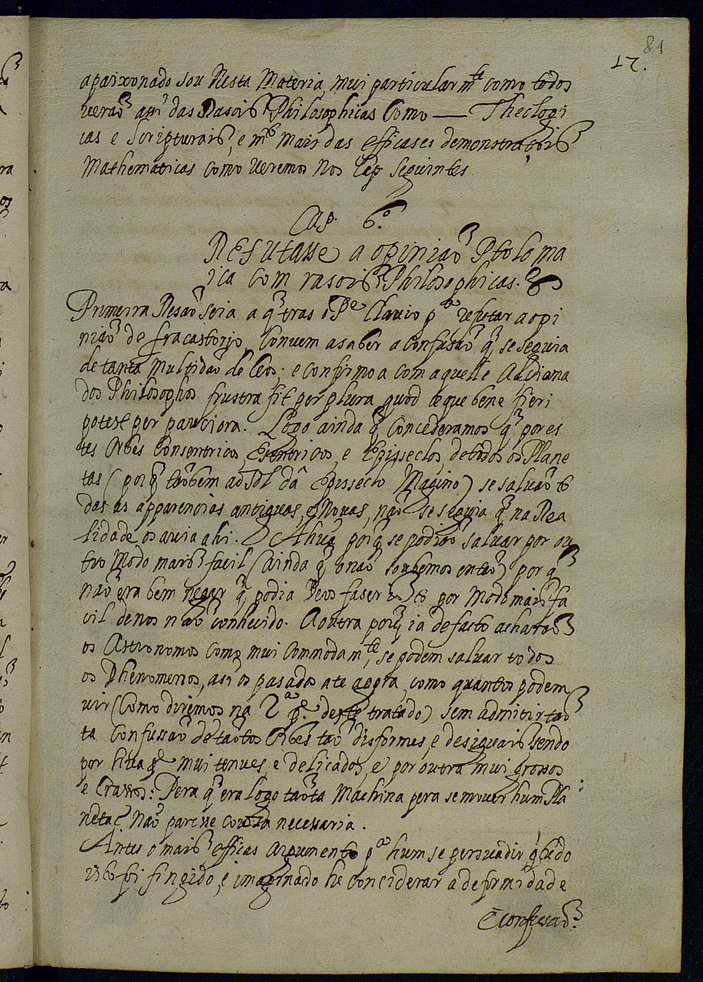 81
17.
apaixonado sou nesta materia, mui particularm.te como todos
verão aqui das Rasois Philosophicas Como — Theologi
cas e Scripturais, e m.to mais das efficases demonstraçois
Mathematicas como veremos nos Cap. Seguintes
Cap. 6.º
Refutasse a opinião Ptoloma
ica com rasois Philosophicas.
Primeira Resão seia a q̃ tras o P.e Clavio p.a refutar a opi
nião de fracastorio, Convem a saber a confusão q̃ se seguia
de tanta multidão de Ceos. e confirmo a com aquelle Adagio
dos Philosophos frustra fit per plura quod eque bene fieri
potest per pauciora. Logo ainda q̃ concederamos q̃ por es
tes Orbes Consentricos Esentricos, e Episseclos de todos os Plane
tas (porq̃ tãobem ao Sol dâ Episseclo Magino) se salvão to
das as apparencias antiguas, e Novas, não se seguia q̃ na Rea
lidade os avia ahi. A hũa porq̃ se podião salvar por ou
tro Modo mais facil (ainda q̃ o não soubemos então) por q̃
não era bem negar q̃ podia Deos faser por Modo mais fa
cil de nos não conhecido. A outra porq̃ ia de facto achatão
os Astronomos como mui commodam.te se podem salvar todos
os Phenomenos, asi os pasados ate agora, como quantos podem
vir (Como diremos na 2.ª p. deste tratado) sem admitir tan
ta confussão de tantos Orbes tão disformes e desiguais sendo
por hũa p. mui tenues e delicados, e por outra mui grosos
e Crassos: Pera q̃ era logo tanta Machina pera se mover hum Pla
neta? Não parese cousa necessaria.
Antes o mais efficas argumento p.a hum se persuadir q̃ tudo
isto foi fingido, e imaginado he conciderar a deformidade
e confusão